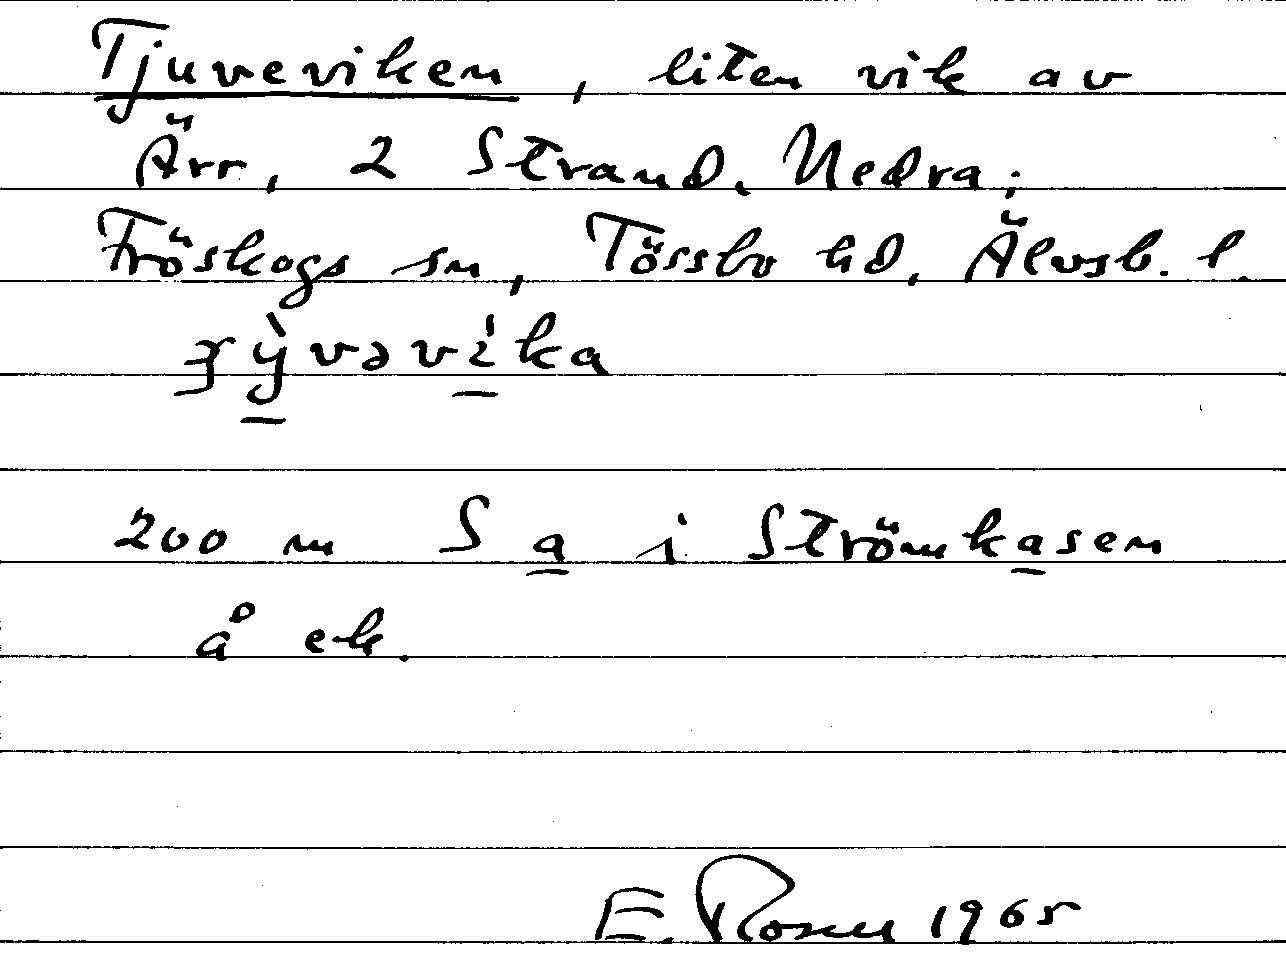 Tjuveviken, liten vik av
Ärr, 2 Strand, Nedra;
Fröskogs sn, Tössbo hd, Älvsb. l.
ʒỳvəvìka
200 m S a i Strömkasen
å ek.
E. Rosell 1965